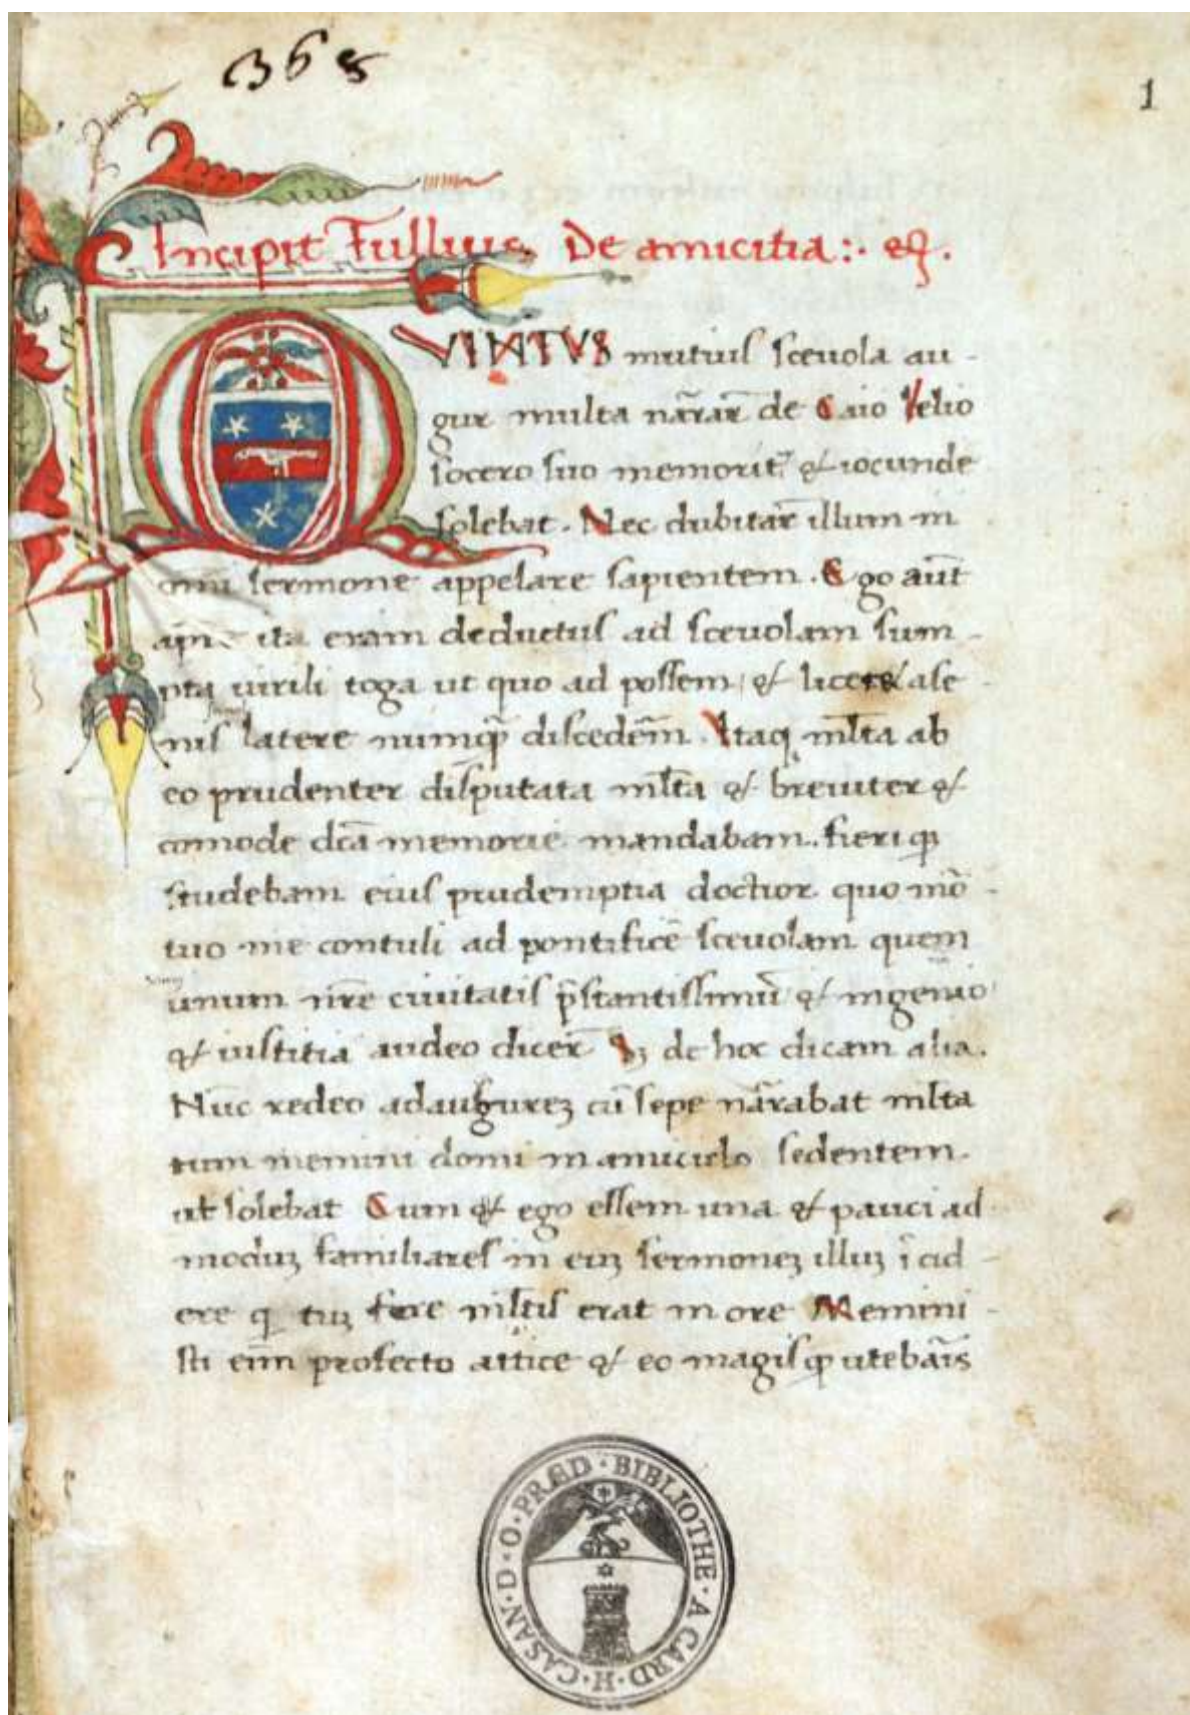 368
1
Incipit Tullius De amicitia :·
QVINTVS mutius sceuola au-
gur multa nārar̄ de Caio Lelio
socero suo memorit̄ & iocunde
solebat. Nec dubitar̄ illum in
omī sermone appelare sapientem. Ego aut̄
ita eram deductus ad sceuolam sum-
pta uirili toga ut quo ad possem & licet ase-
nis latere numq̄ discedēm. Itaq mlt̄a ab
eo prudenter disputata mlt̄a & breuiter &
comode dc̄a memorie mandabam. fieri q̄
studebam eius prudemptia doctior quo mō-
tuo me contuli ad pontificē sceuolam quem
unum nr̄e ciuitatis p̄stantissimū & ingenio
& iustitia audeo dicer̄ Sꝫ de hoc dicam alia.
Nūc redeo ad augureꝫ cū sepe nārabat mlt̄a
tum memini domi in amiciclo sedentem
ut solebat Cum & ego essem una & pauci ad
moduꝫ familiares in euꝫ sermoneꝫ illuꝫ īcid-
ere q tuꝫ fere mlt̄is erat in ore Memini-
sti eīm profecto attice & eo magis q̄ utebār̄is
BIBLIOTHE·A CARD·H·CASAN·D·O·PRÆD·